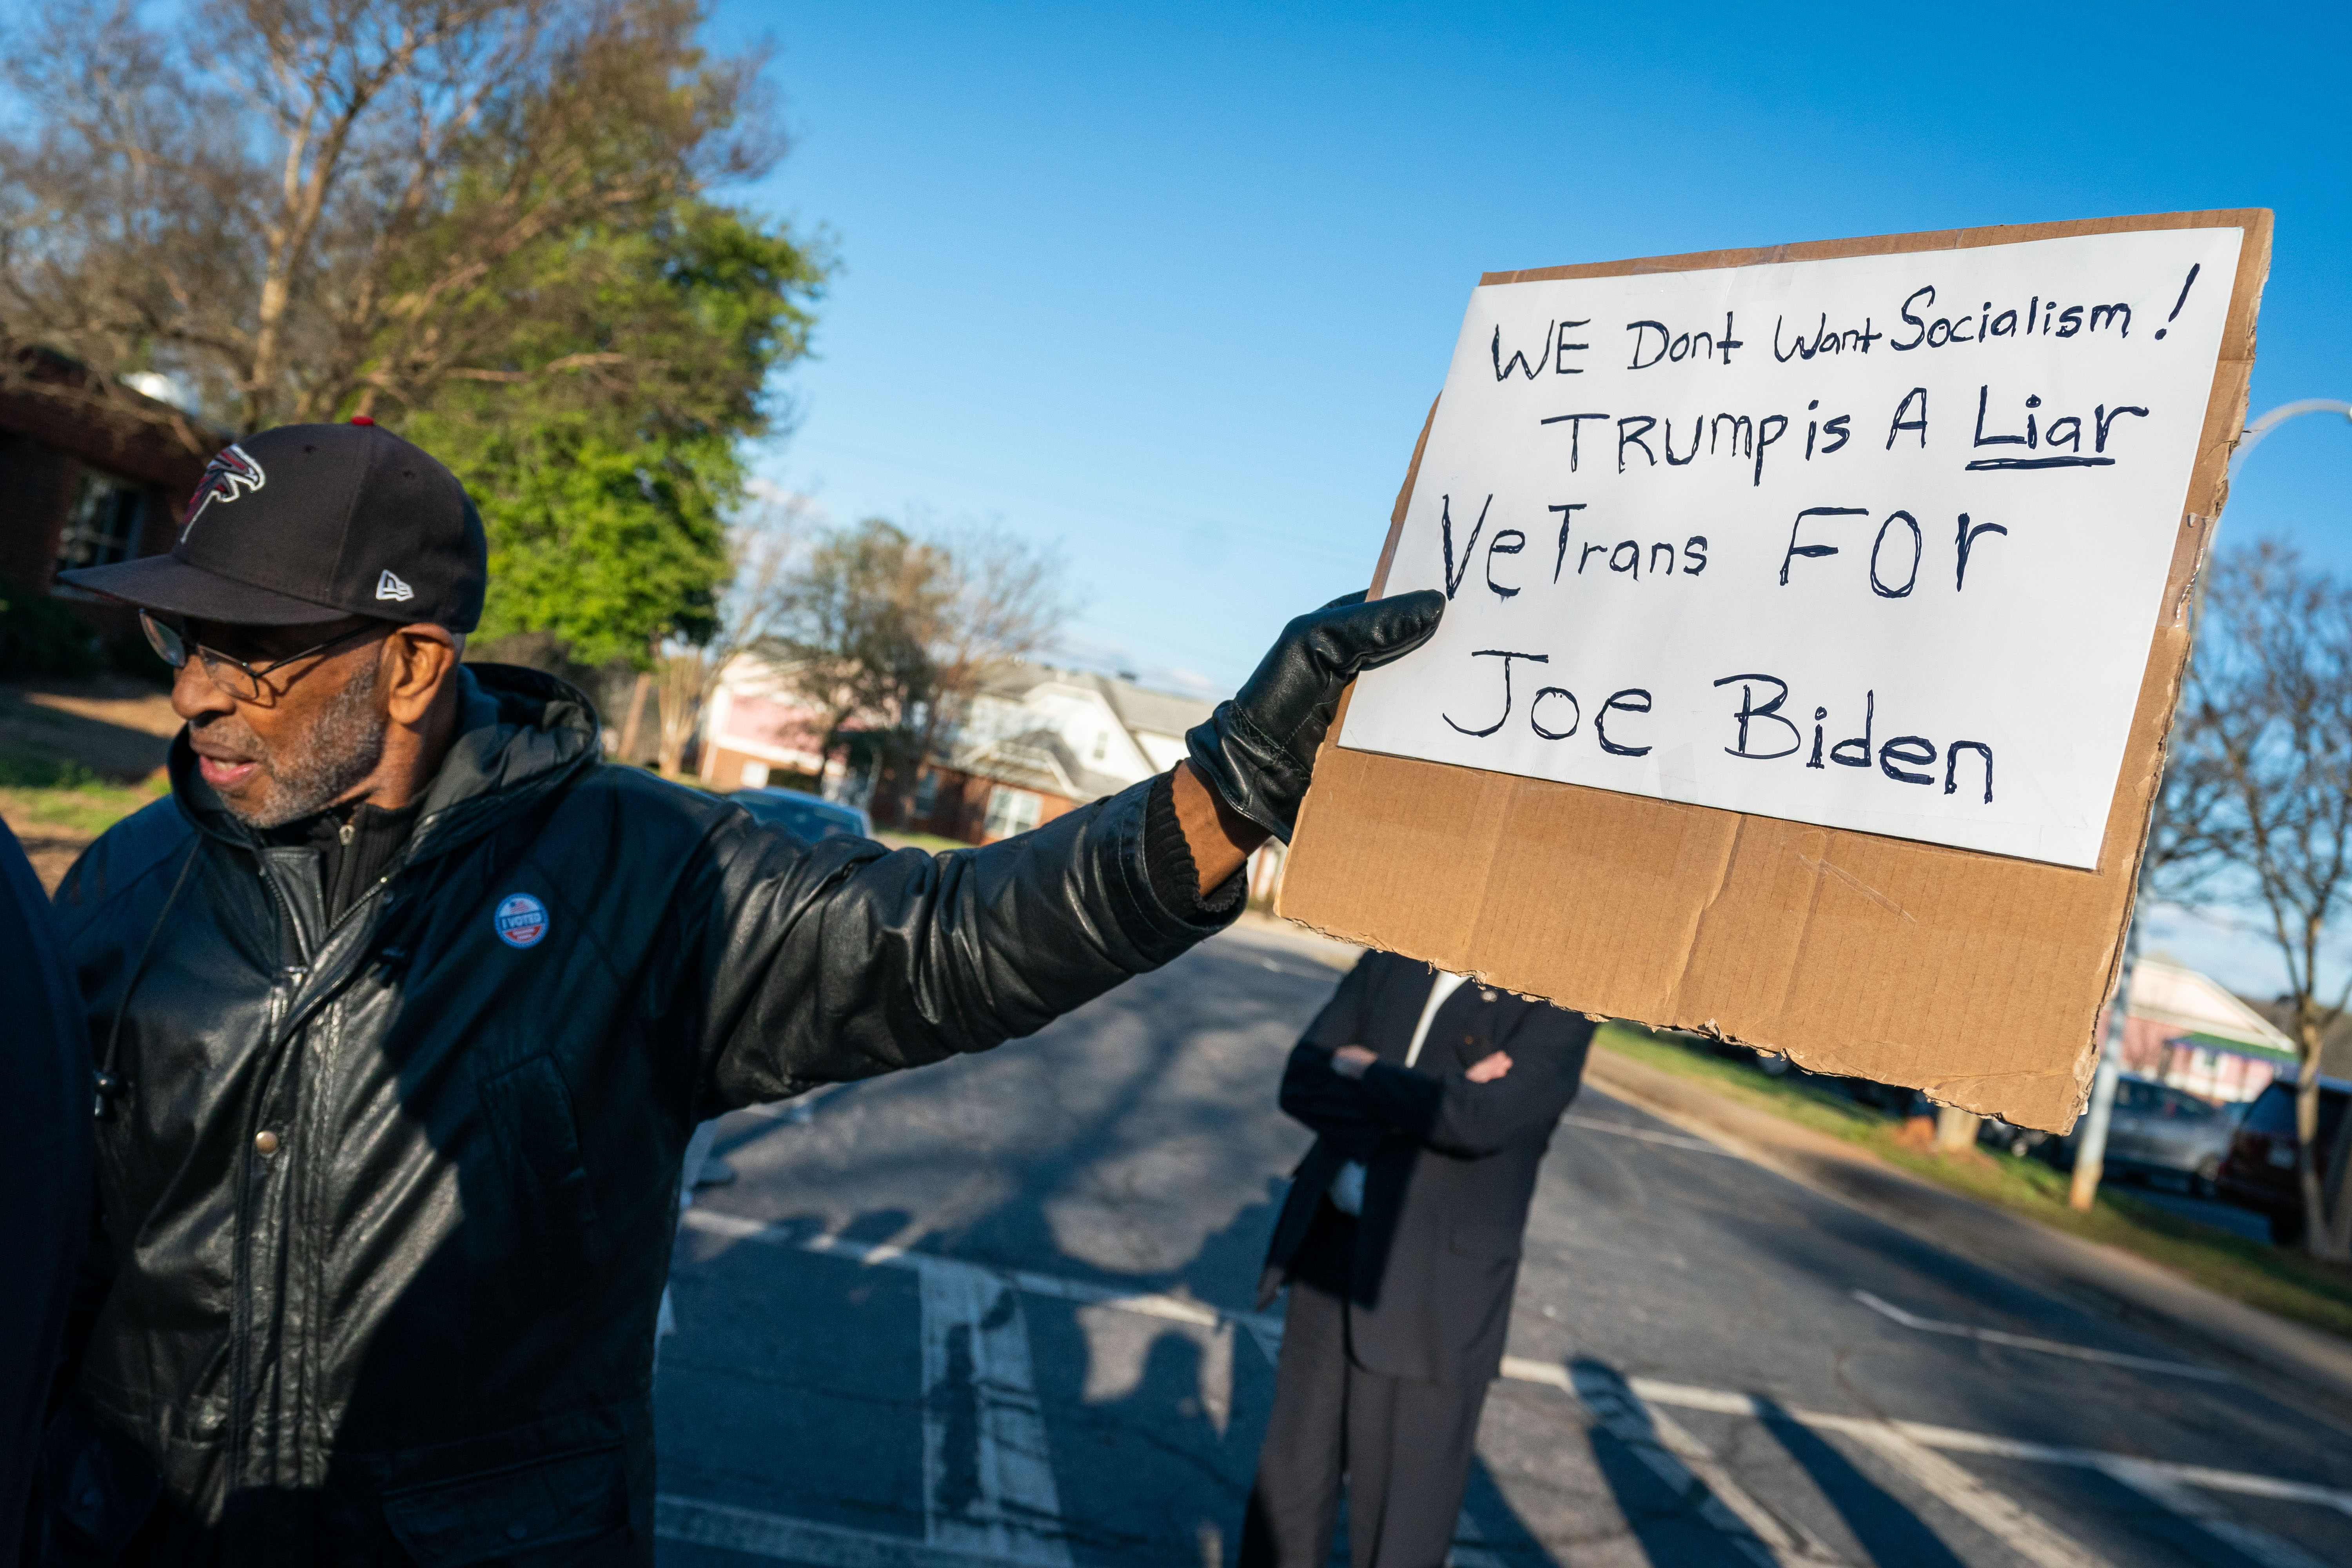 WE Dont Want Socialism!
TRUMP is A Liar
VeTrans FOr
Joe Biden
I VOTED